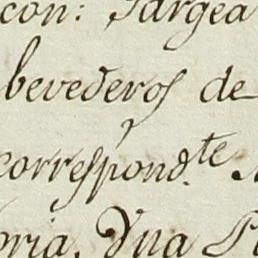 con: Sargea
bevederos de
correspond.te
oria. Una